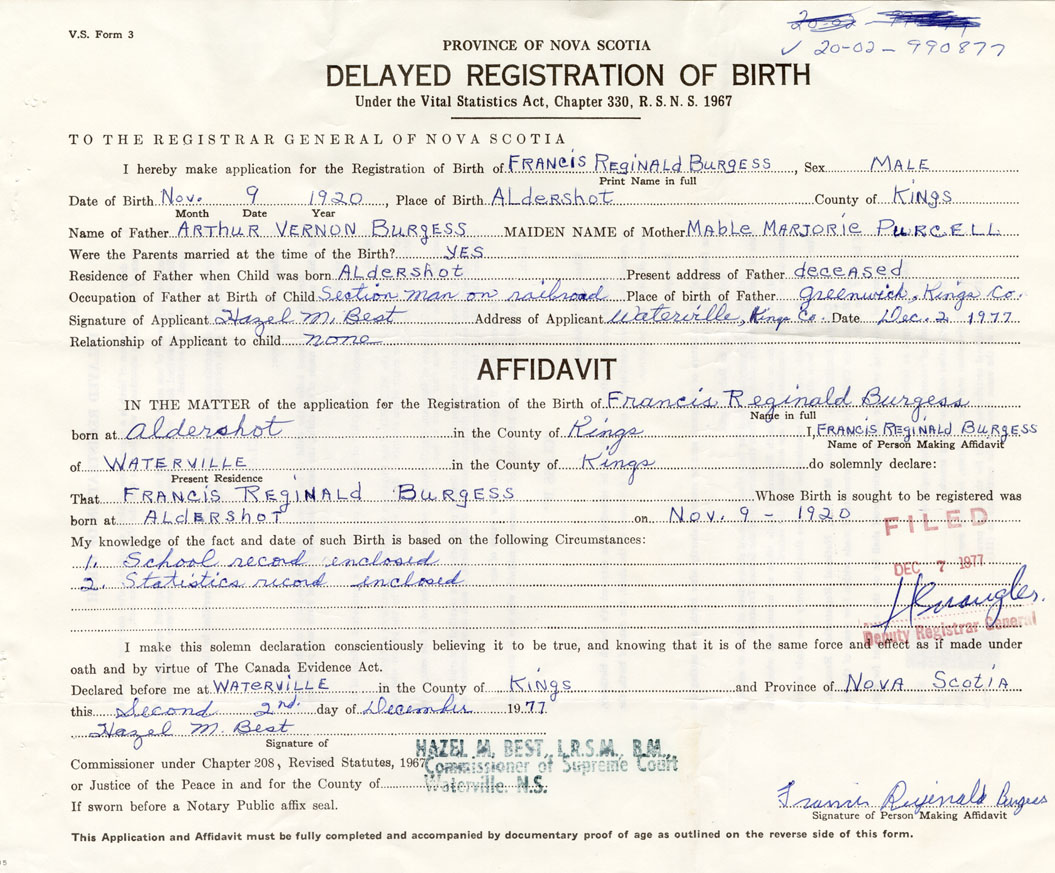 V.S. Form 3
✓ 20-02-990877
PROVINCE OF NOVA SCOTIA
DELAYED REGISTRATION OF BIRTH
Under the Vital Statistics Act, Chapter 330, R.S.N.S. 1967
TO THE REGISTRAR GENERAL OF NOVA SCOTIA
I hereby make application for the Registration of Birth of FRANCIS REGINALD BURGESS, Sex MALE
Print Name in full
Date of Birth Nov. 9 1920, Place of Birth ALdershot County of KINGS
Month Date Year
Name of Father ARTHUR VERNON BURGESS MAIDEN NAME of Mother MABLE MARJORIE PURCELL
Were the Parents married at the time of the Birth? YES
Residence of Father when Child was born ALdershot Present address of Father deceased
Occupation of Father at Birth of Child Section man on railroad Place of birth of Father Greenwich, Kings Co.
Signature of Applicant Hazel M. Best Address of Applicant Waterville, Kings Co. Date Dec. 2 1977
Relationship of Applicant to child none
AFFIDAVIT
IN THE MATTER of the application for the Registration of the Birth of Francis Reginald Burgess
Name in full
born at Aldershot in the County of Kings I, FRANCIS REGINALD BURGESS
Name of Person Making Affidavit
of WATERVILLE in the County of Kings do solemnly declare:
Present Residence
That FRANCIS REGINALD BURGESS Whose Birth is sought to be registered was
born at ALDERSHOT on Nov. 9 - 1920
FILED
My knowledge of the fact and date of such Birth is based on the following Circumstances:
1. School record enclosed
DEC 7 1977
2. Statistics record enclosed
Deputy Registrar General
I make this solemn declaration conscientiously believing it to be true, and knowing that it is of the same force and effect as if made under
oath and by virtue of The Canada Evidence Act.
Declared before me at WATERVILLE in the County of KINGS and Province of NOVA SCOTIA
this Second 2nd. day of December 1977
Hazel M. Best
Signature of
HAZEL M. BEST, L.R.S.M., B.M.,
Commissioner under Chapter 208, Revised Statutes, 1967
Commissioner of Supreme Court
or Justice of the Peace in and for the County of
Waterville, N.S.
If sworn before a Notary Public affix seal.
Francis Reginald Burgess
Signature of Person Making Affidavit
This Application and Affidavit must be fully completed and accompanied by documentary proof of age as outlined on the reverse side of this form.